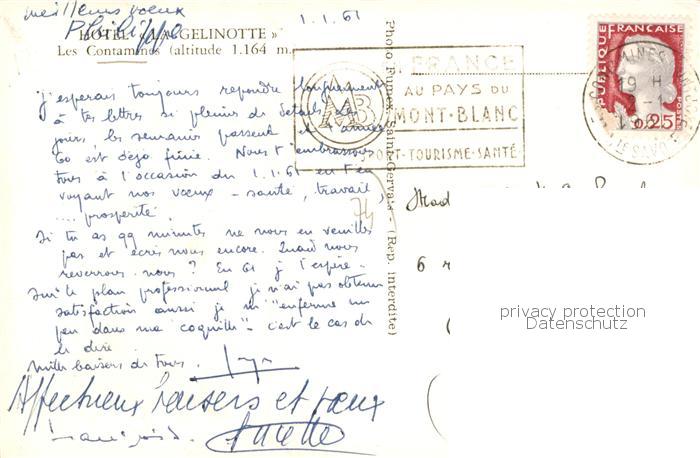 meilleurs voeux
Philippe
1.1.61
HOTEL « LA GELINOTTE »
Les Contamines (altitude 1.164 m.
j'esperais toujours repondre longuement
à tes lettres si pleines de détails
jours, les semaines passent et l'année
60 est déjà finie. Nous t'embrassons
tous à l'occasion du 1.1.61 en t'en
voyant nos voeux - santé, travail,
.... prosperité.
Si tu as qq minutes ne nous en veuilles
pas et ecris nous encore. Quand nous
reverrons. nous? En 61 j l'espère.
Sur le plan professionnel je n'ai pas obtenu
satisfaction aussi je m'"enferme un
peu dans ma coquille" - c'est le cas de
le dire
Mille baisers de tous.
Affectueux baisers et voeux
Photo Fumex, Saint-Gervais - (Rep. interdite)
FRANCE
AU PAYS DU
MONT-BLANC
SPORT-TOURISME-SANTÉ
AMB
REPUBLIQUE FRANÇAISE
0,25
19 H
Mad
6
privacy protection
Datenschutz